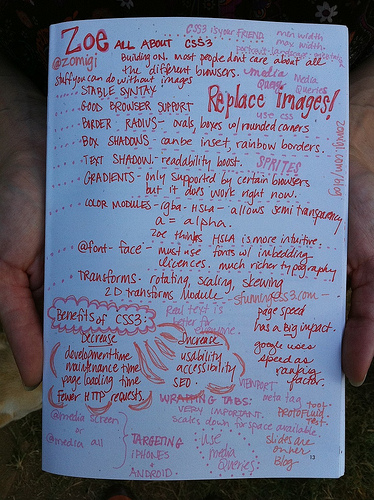 CSS3 is your FRIEND
min width
max width
Zoe ALL ABOUT CSS3
portrait - landscape - orientation
@zomigi Building on. most people dont care about all
the different browsers.
@media
Queries
Media
Queries
Stuff you can do without images
STABLE SYNTAX
GOOD BROWSER SUPPORT
Replace Images!
use css
BORDER RADIUS - ovals, boxes w/rounded corners
BOX SHADOWS - can be inset, rainbow borders.
TEXT SHADOW - readability boost.
SPRITES
zomigi.com/blog
GRADIENTS - only supported by certain browsers
but it does work right now.
COLOR MODULES - rgba - HSLA - allows semi transparency
a = alpha.
Zoe thinks HSLA is more intuitive.
@font-face - must use fonts w/ imbedding
licences. much richer typography
Transforms - rotating, scaling, skewing
2D transforms Module -
stunningcss3.com -
Benefits of CSS3:
Real text is
better for
everyone.
page speed
has a big impact.
google uses
speed as
ranking
factor.
Decrease
development time
maintenance time
page loading time
fewer HTTP requests
Increase
usability
accessibility
SEO
VIEWPORT
meta tag
WRAPPING TABS:
VERY IMPORTANT.
Scales down for space available
PROTOFLUID
test.
@media screen
or
@media all
TARGETING
iPHONES
+
ANDROID.
Use
media
queries
Slides are
on her
Blog
13